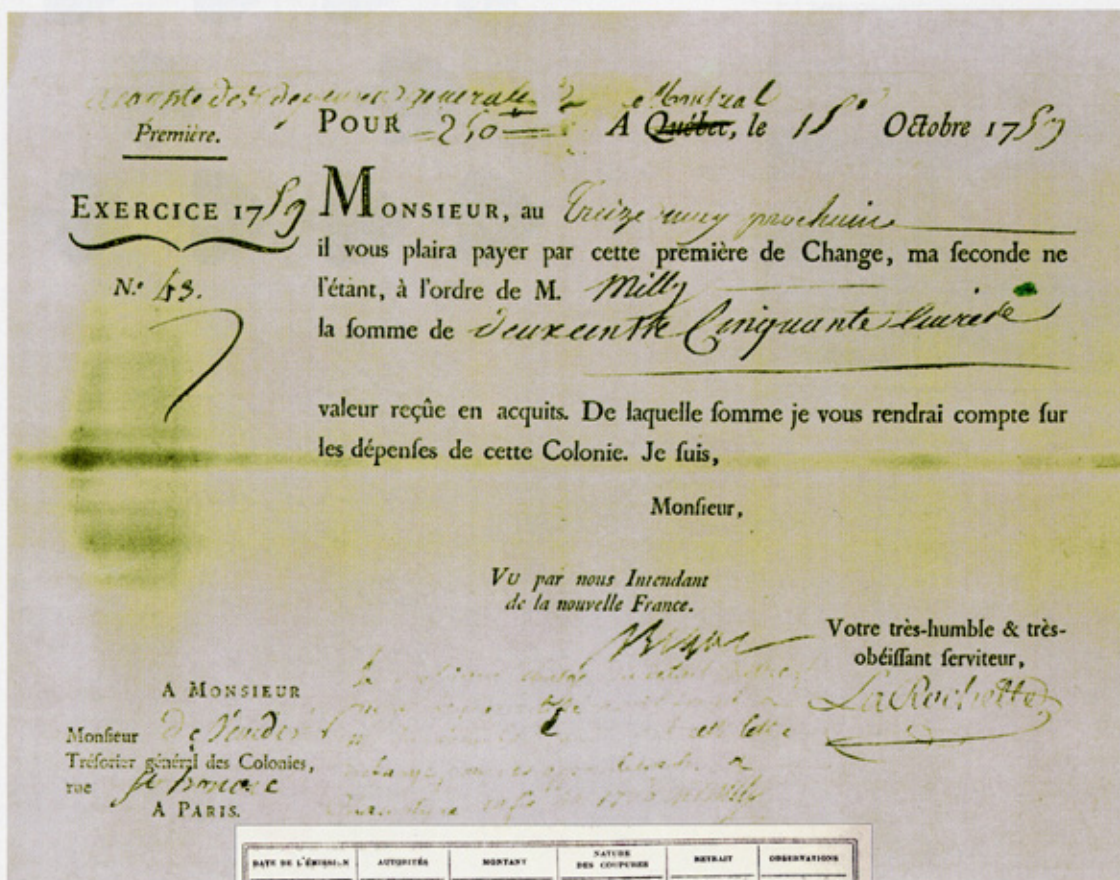 a compte des depenses generale
Première.
POUR =250=
A Montreal Québec, le 15 Octobre 1759
EXERCICE 1759
MONSIEUR, au Treize may prochain
il vous plaira payer par cette première de Change, ma ſeconde ne
N.º 43.
l'étant, à l'ordre de M. Milly
la ſomme de deux cents Cinquante Livres
valeur reçûe en acquits. De laquelle ſomme je vous rendrai compte ſur
les dépenſes de cette Colonie. Je ſuis,
Monſieur,
VU par nous Intendant
de la nouvelle France.
Bigot
Votre très-humble & très-
obéiſſant ſerviteur,
La Rochette
A MONSIEUR
Monſieur de
Tréſorier général des Colonies,
rue St honoré
A PARIS.
DATE DE L'ÉMISSION AUTORITÉS MONTANT NATURE DES COUPURES RETRAIT OBSERVATIONS